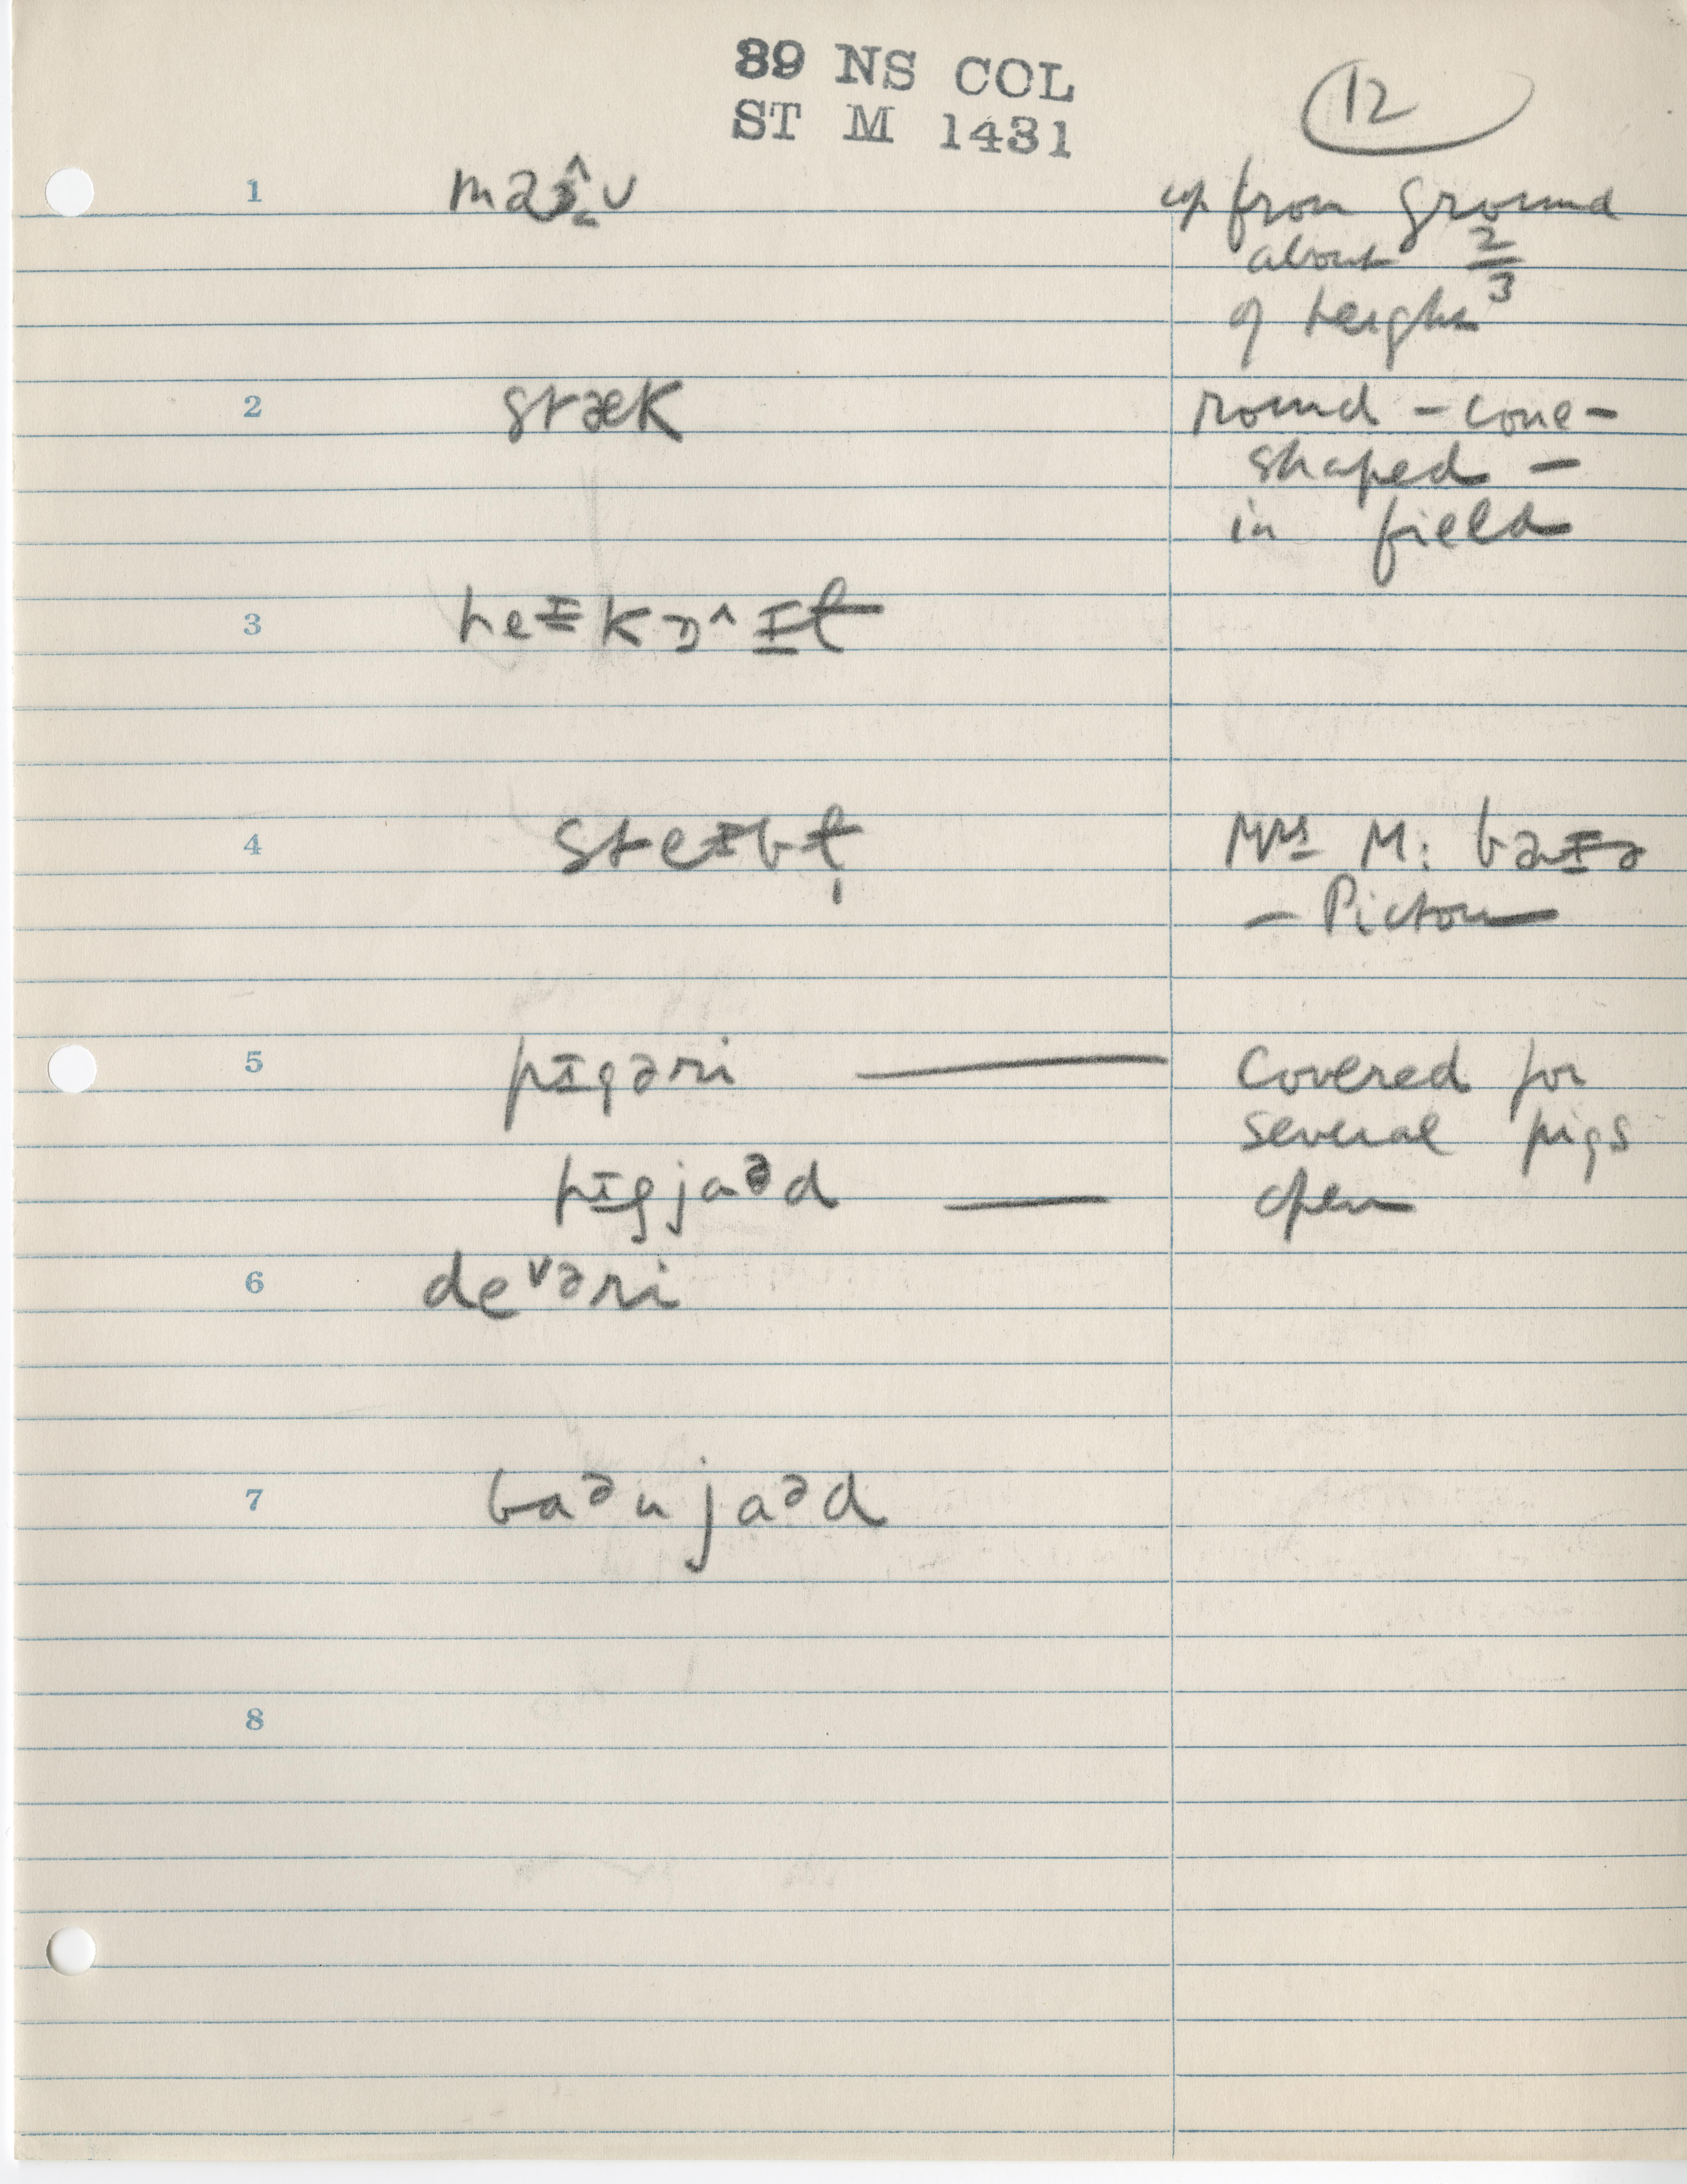 89 NS COL
ST M 1431
12
1
up from ground
about 2/3
of height
2 stæk round - cone-
shaped -
in field
3
4 Mrs M:
- Pictou
5 pɪgəri — Covered for
several pigs
pɪgjaᵊd — open
6 deᵛəri
7 baᵊnjaᵊd
8